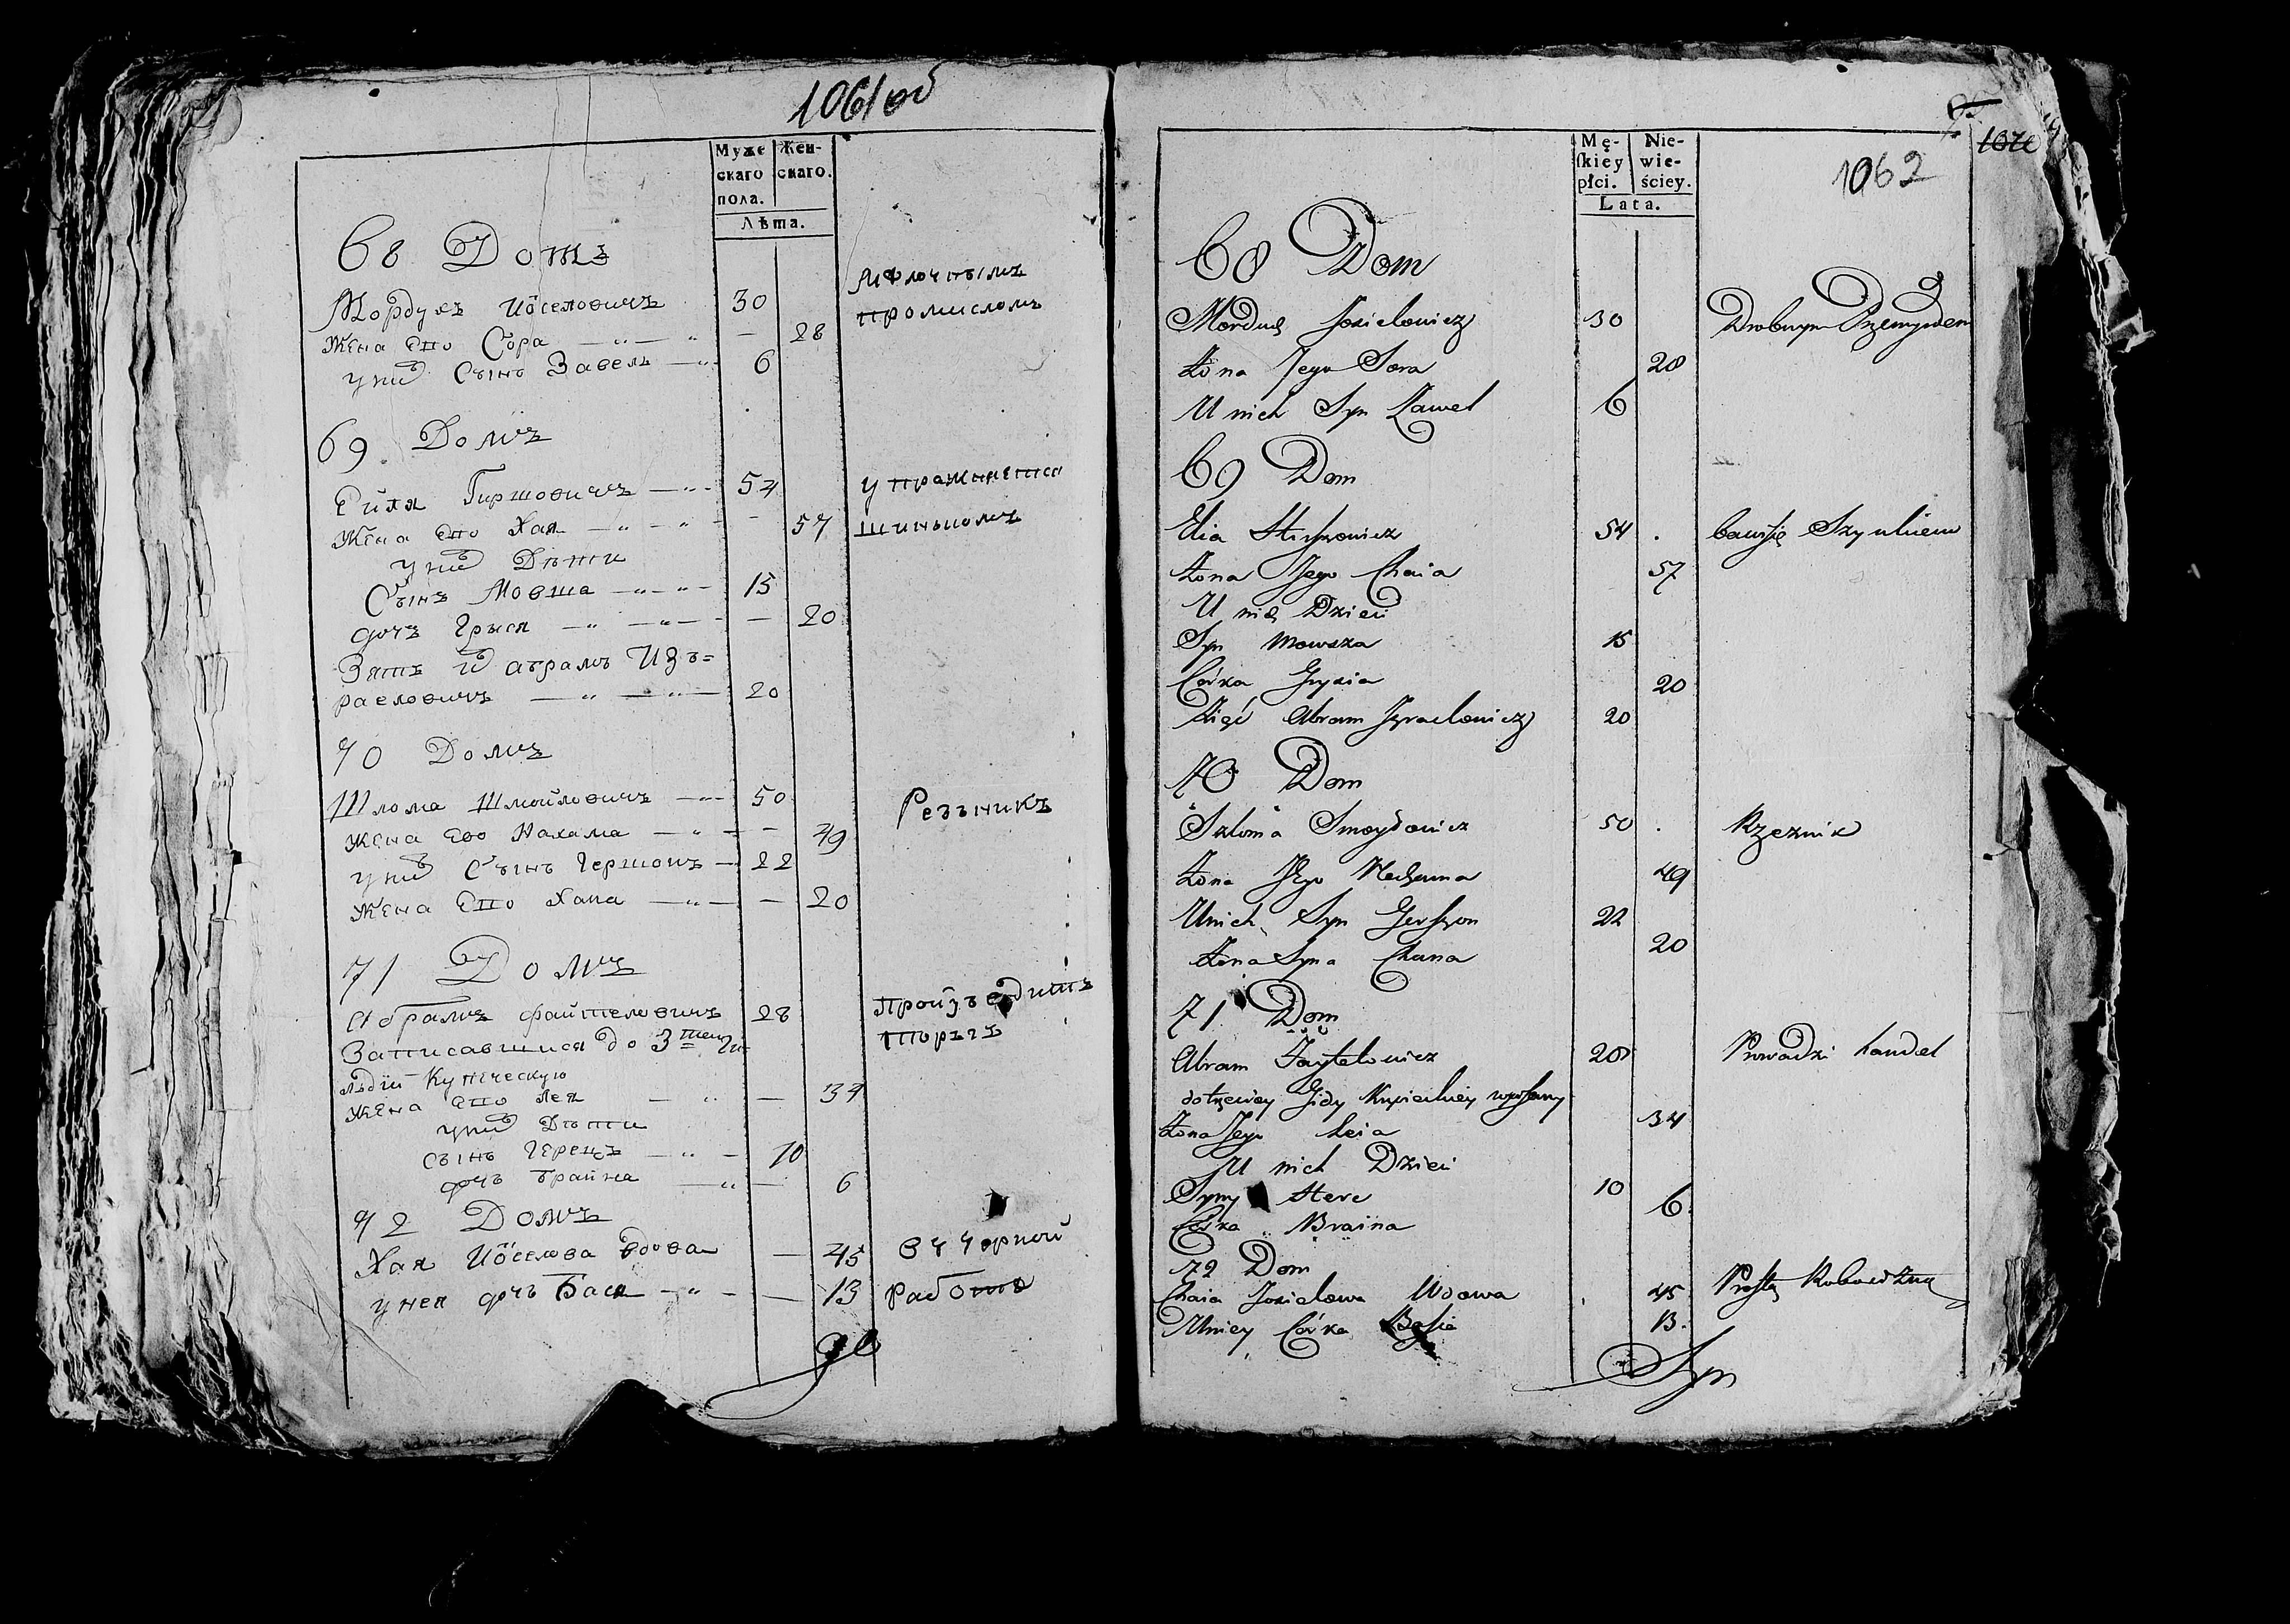 1061 об
Муже
скаго
пола.
Жен-
скаго.
Лѣта.
68 Домъ
Мордухъ Иоселовичъ 30
Мелочнымъ
промисломъ
Жена его Сора — 28
у них Сынъ Завель 6
69 Домъ
Ейля Гиршовичъ 54
упражняется
шинькомъ
Жена его Хая — 57
у них Дѣти
Сынъ Мовша 15
дочъ Грыся — 20
Зять их Абрамъ Изъ=
раеловичъ 20
70 Домъ
Шлома Шмойловичъ 50
Резъникъ
Жена его Нахама — 49
у них Сынъ Гершонъ 22
Жена его Хана — 20
71 Домъ
Абрамъ Файтеловичъ 28
Произъводитъ
торъгъ
Записавшися до 3 тей Ги=
льдіи Купеческую
Жена его Лея — 34
у них Дѣти
сынъ Герецъ 10
дочъ Брайна — 6
72 Домъ
Хая Иоселова вдова — 45
въ чорной
работѣ
у неи дочъ Бася — 13
1062
Mę-
ſkiey
płci.
Nie-
wie-
ściey.
Lata.
68 Dom
Morduch Josielowicz 30 Drobnym Przemysłem
Żona Jego Sora 28
U nich Syn Zawel 6
69 Dom
Elia Hirszowicz 54 bawi się Szynkiem
Żona Jego Chaia 57
U nich Dzieci
Syn Mowsza 15
Córka Grysia 20
Zięć Abram Izraelowicz 20
70 Dom
Szloma Smoyłowicz 50 Rzeznik
Żona Jego Nechama 49
U nich Syn Gerszon 22
Żona Syna Chana 20
71 Dom
Abram Faytelowicz 28 Prowadzi handel
do trzeciey Gildy Kupieckiey wpisany
Żona Jego Leia 34
U nich Dzieci
Syny Herc 10
Córka Braina 6
72 Dom
Chaia Josielowa Wdowa 45
U niey Córka Basia 13
Syn